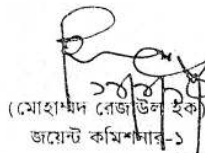 (মোহাম্মদ রেজাউল হক)
জয়েন্ট কমিশনার-১